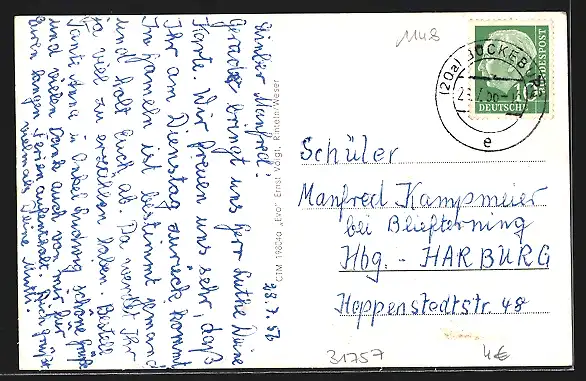 28.7.56
Lieber Manfred!
Gerade bringt uns Herr Luthe Deine
Karte. Wir freuen uns sehr, daß
Ihr am Dienstag zurück kommt
In Hameln ist bestimmt jemand
und holt Euch ab. Da werdet Ihr
ja viel zu erzählen haben. Bestell
Tante Anna u. Onkel schöne Grüße
und vielen Dank auch von mir für
Euren langen Ferienaufenthalt. Dich grüßt
vielmals Deine Mutti.
CTM 19804a „Evo“ Ernst Voigt, Rinteln Weser
1148
(20a) BÜCKEBURG
e
DEUTSCHE BUNDESPOST
Schüler
Manfred Kampmeier
bei Bliefterning
Hbg. - HARBURG
Hoppenstedtstr 48
31757
4€